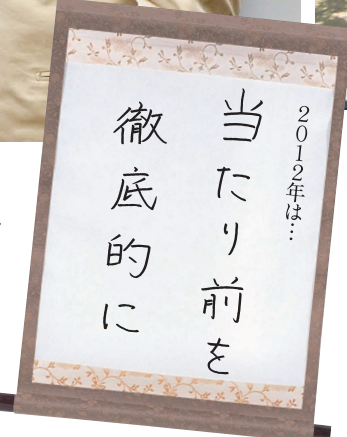 2012年は…
当たり前を
徹底的に